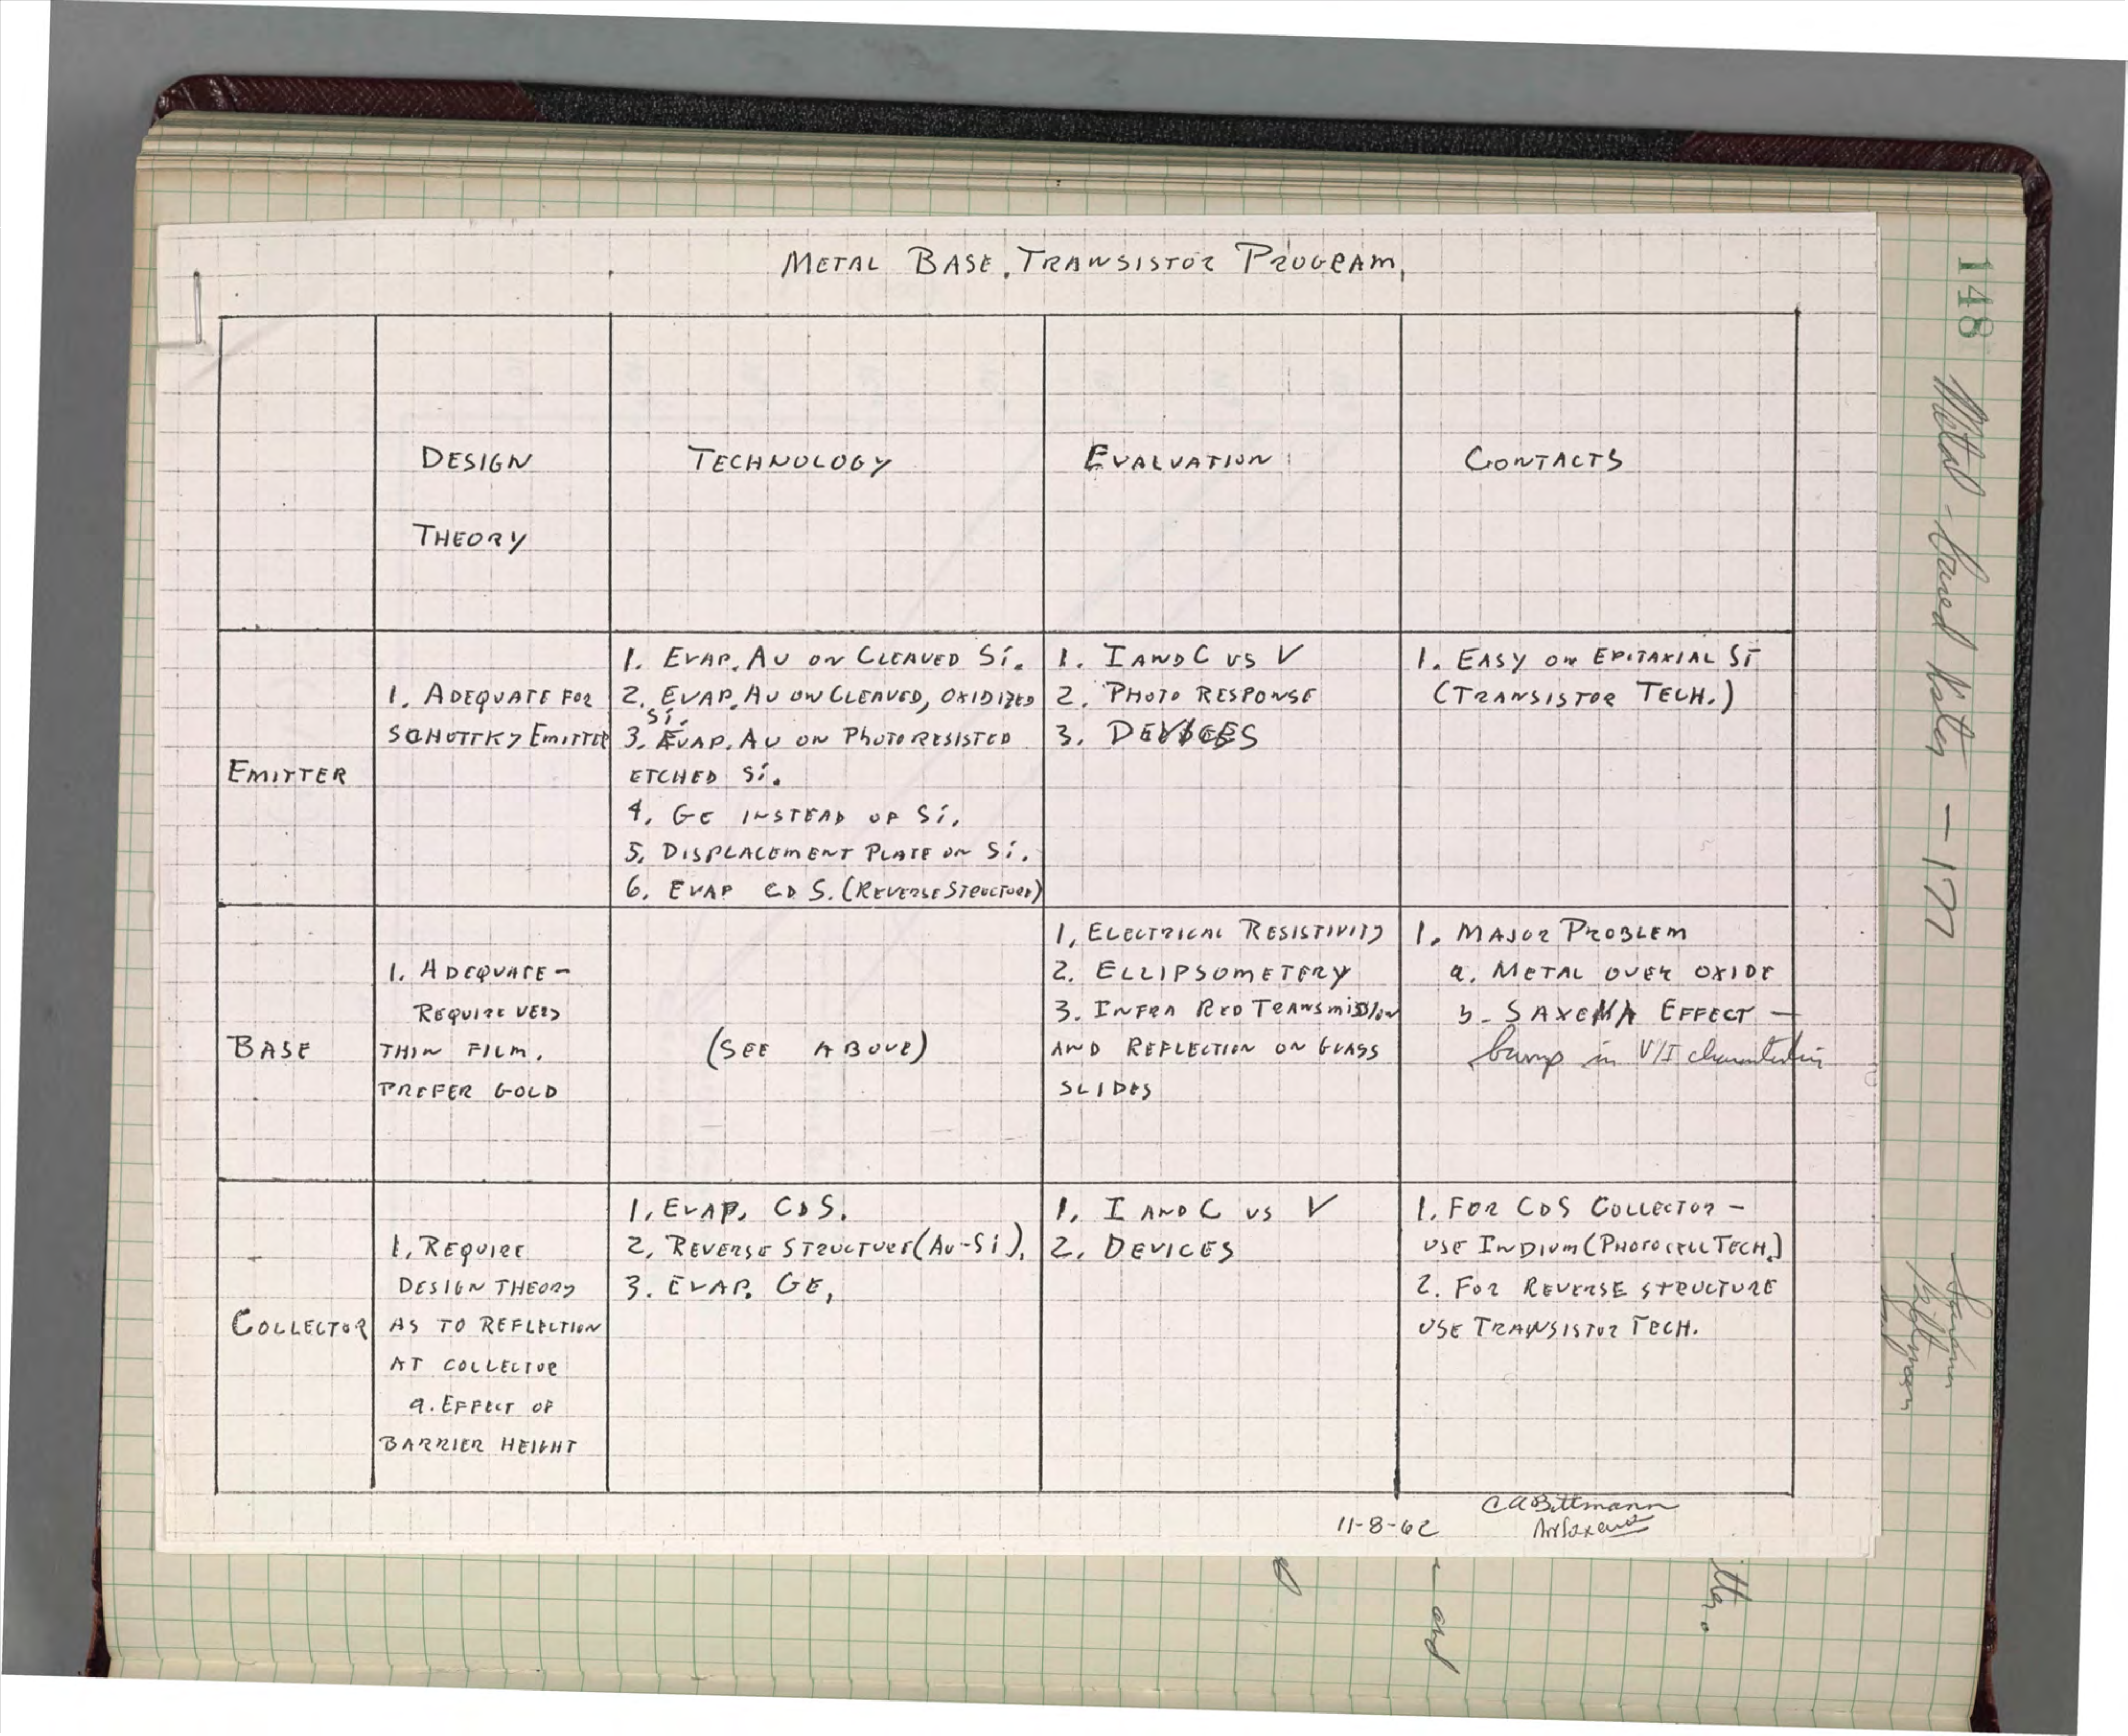 METAL BASE TRANSISTOR PROGRAM
DESIGN
THEORY
TECHNOLOGY
EVALUATION
CONTACTS
EMITTER
1. ADEQUATE FOR
SCHOTTKY EMITTER
1. EVAP. AU ON CLEAVED Si.
2. EVAP. AU ON CLEAVED, OXIDIZED
Si.
3. EVAP. AU ON PHOTORESISTED
ETCHED Si.
4. GE INSTEAD OF Si.
5. DISPLACEMENT PLATE ON Si.
6. EVAP CD S. (REVERSE STRUCTURE)
1. I AND C VS V
2. PHOTO RESPONSE
3. DEVICES
1. EASY ON EPITAXIAL Si
(TRANSISTOR TECH.)
BASE
1. ADEQUATE-
REQUIRE VERY
THIN FILM.
PREFER GOLD
(SEE ABOVE)
1. ELECTRICAL RESISTIVITY
2. ELLIPSOMETERY
3. INFRA RED TRANSMISSION
AND REFLECTION ON GLASS
SLIDES
1. MAJOR PROBLEM
a. METAL OVER OXIDE
b- SAXENA EFFECT -
bump in V/I characteristics
COLLECTOR
1. REQUIRE
DESIGN THEORY
AS TO REFLECTION
AT COLLECTOR
a. EFFECT OF
BARRIER HEIGHT
1. EVAP. CDS.
2. REVERSE STRUCTURE (AU-Si).
3. EVAP. GE.
1. I AND C VS V
2. DEVICES
1. FOR CDS COLLECTOR -
USE INDIUM (PHOTOCELL TECH.)
2. FOR REVERSE STRUCTURE
USE TRANSISTOR TECH.
11-8-62
C A Bittmann
A N Saxena
148
Metal-based - 177
Saxena
Bittmann
and